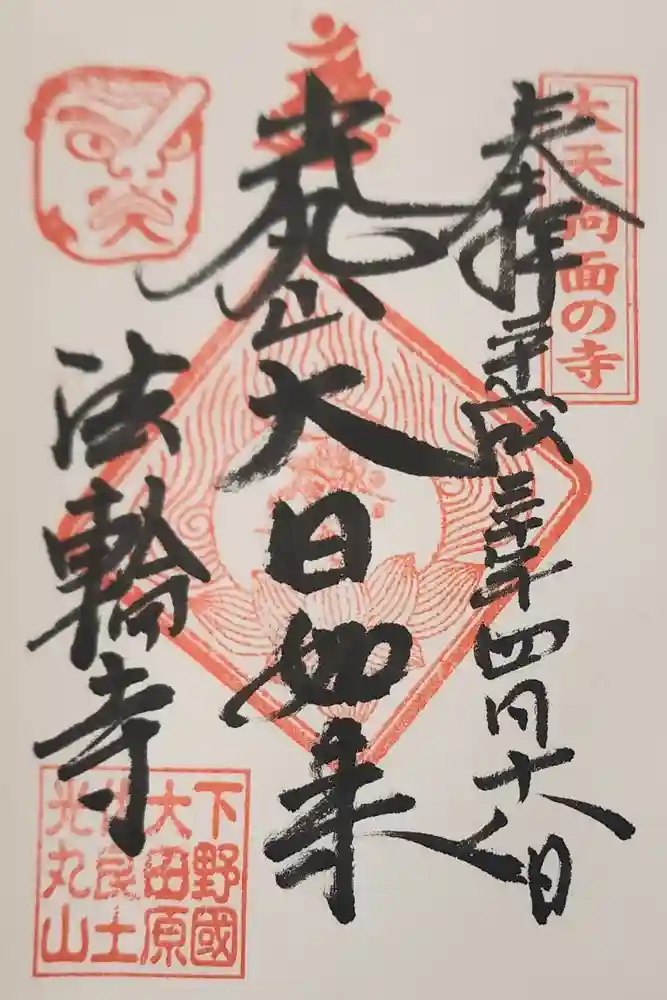 大天狗面の寺
奉拝 平成三十年四月十八日
光丸山 大日如来
法輪寺
下野國
大田原
佐良土
光丸山